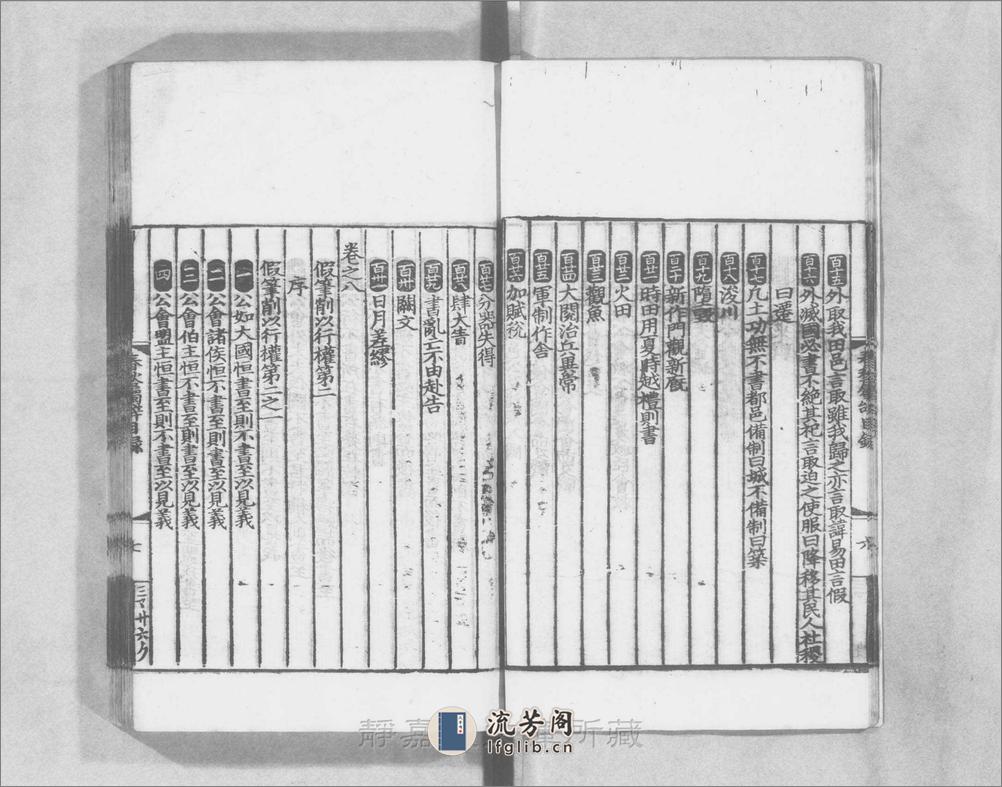 百十五外取我田邑言取雖我歸之亦言取諱易田言假
百十六外滅國必書不絶其祀言取迫之使服曰降移其民人社稷
曰遷
百十七凡土功無不書都邑備制曰城不備制曰築
百十八浚川
百十九隳毀
百二十新作門觀新廐
百廿一時田用夏時越禮則書
百廿二火田
百廿三觀魚
百廿四大閱治兵異常
百廿五軍制作舍
百廿六加賦稅
六
百廿七分器失得
百廿八肆大眚
百廿九書亂亡不由赴告
百卅闕文
百卅一日月差繆
卷之八
假筆削以行權第二
序
假筆削以行權第二之一
一公如大國恒書至則不書至以見義
二公會諸侯恒不書至則書至以見義
三公會伯主恒不書至則書至以見義
四公會盟主恒書至則不書至以見義
春秋屬辭目錄
七
三丁廿六
靜嘉 所藏
流芳阁
lfglib.cn